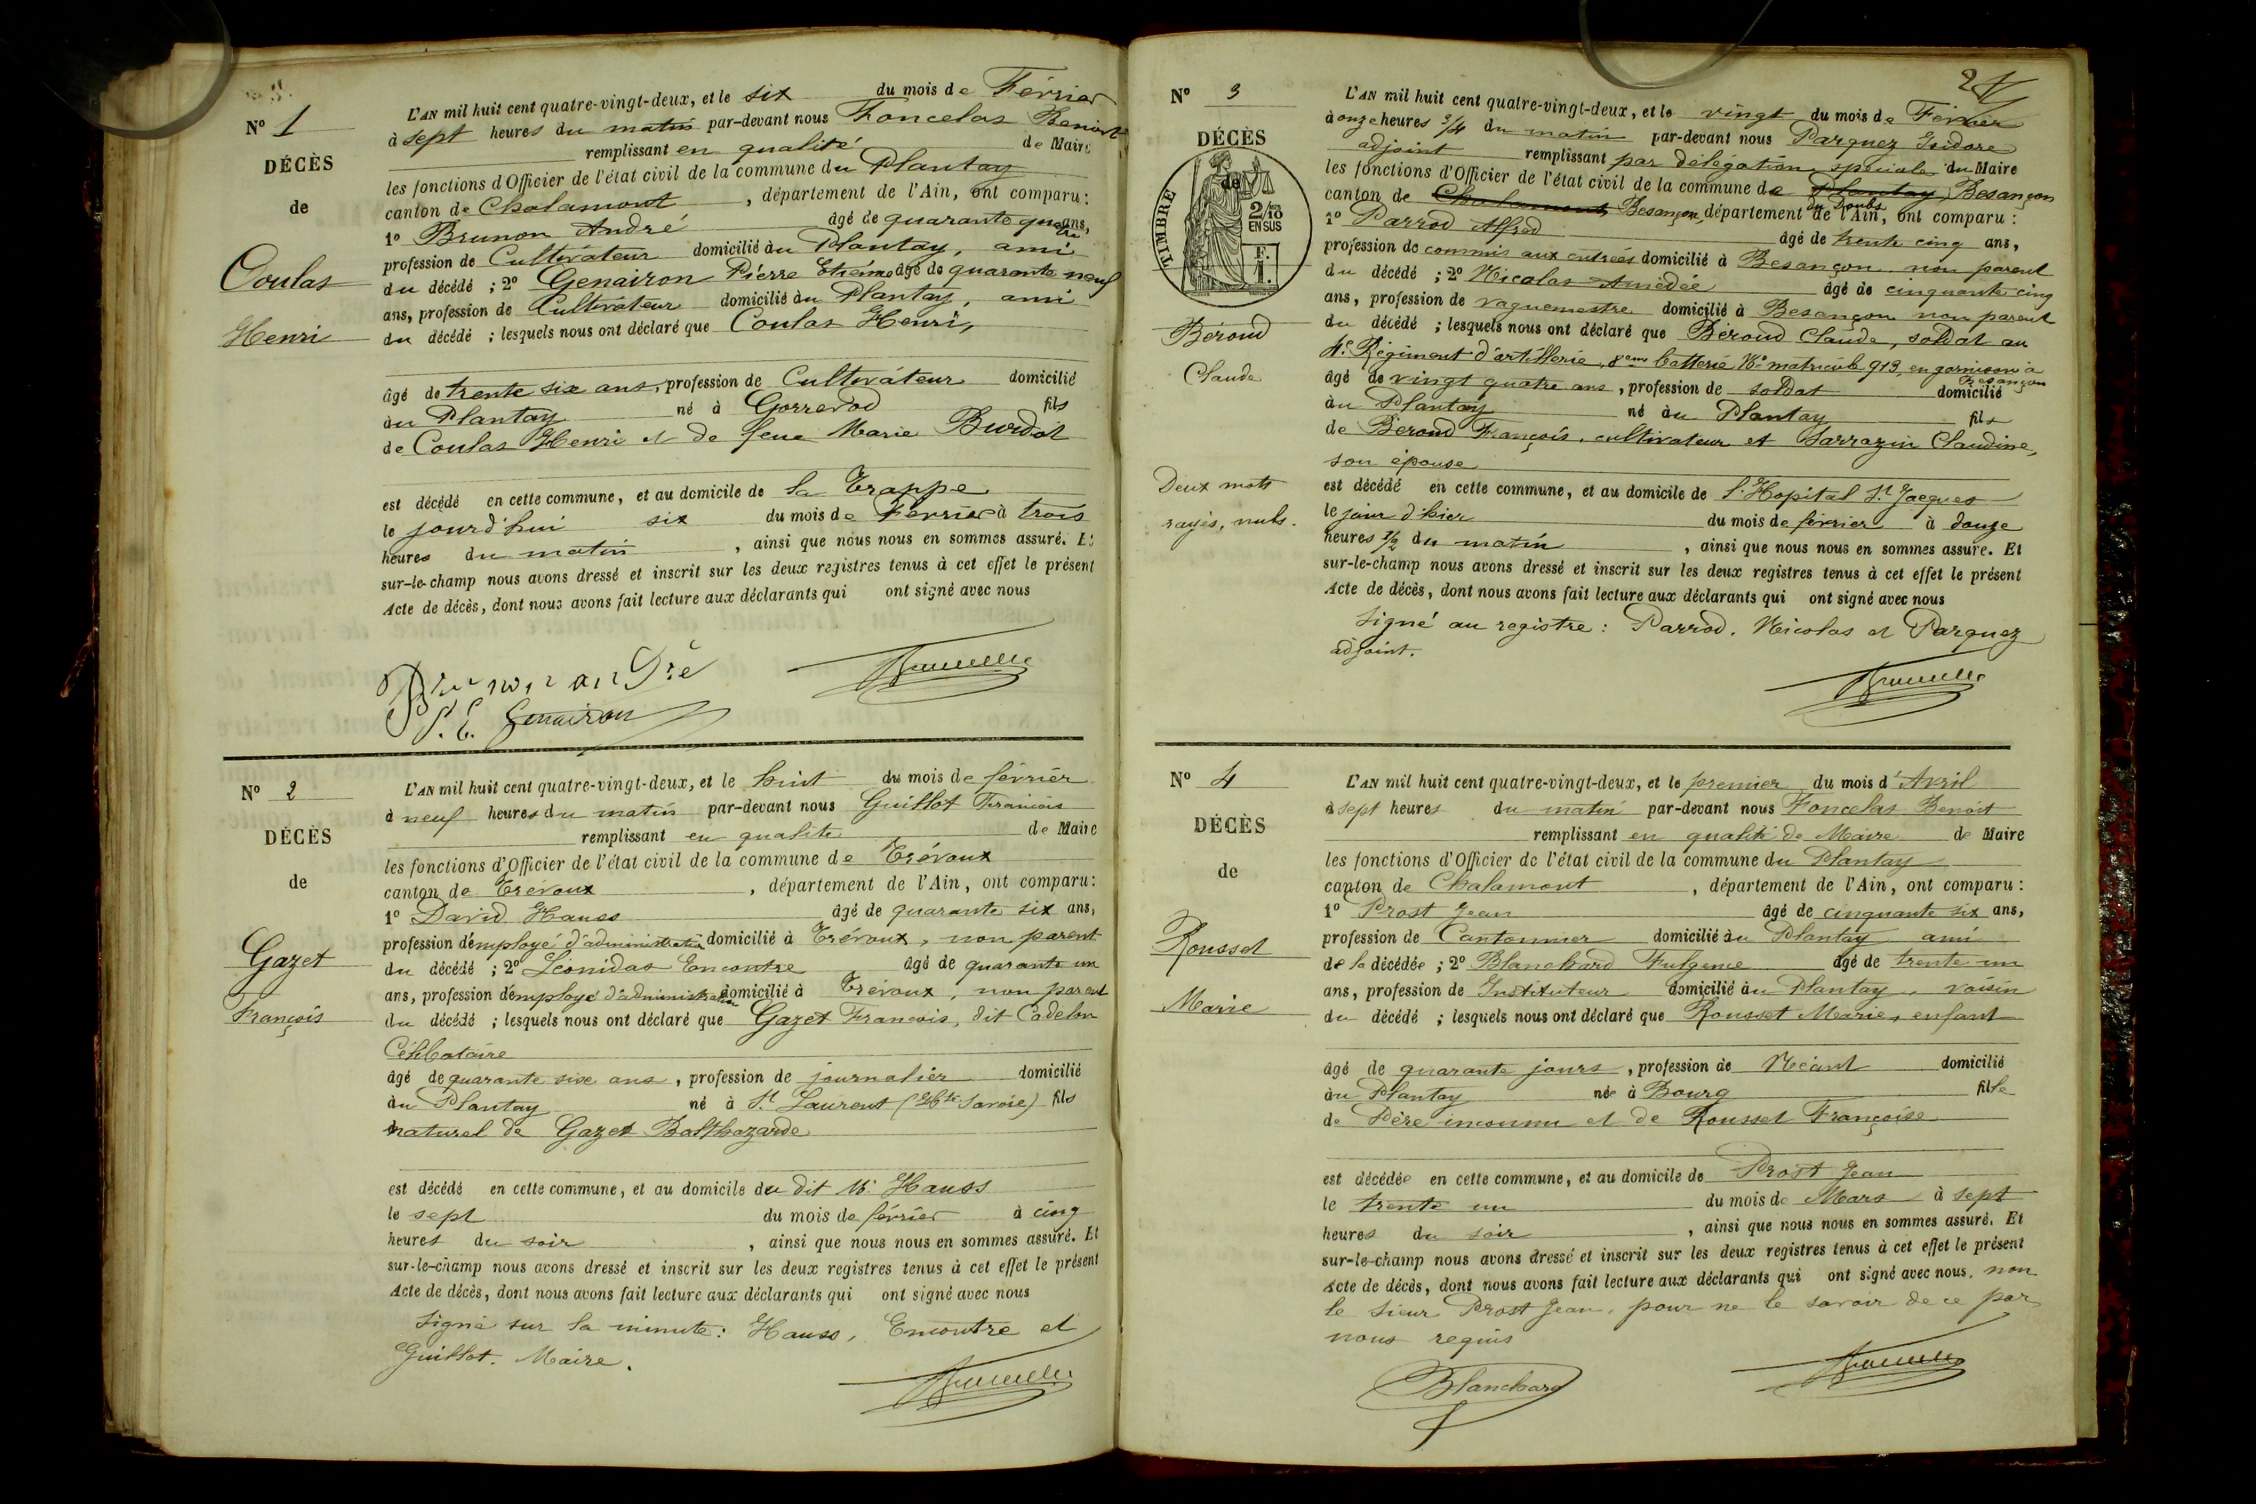 Nº 1
DÉCÈS
de
Coulas
Henri
L'AN mil huit cent quatre-vingt-deux, et le six du mois de Février
à sept heures du matin par-devant nous Foncelas Benoit
remplissant en qualité de Maire
les fonctions d'Officier de l'état civil de la commune du Plantay
canton de Chalamont, département de l'Ain, ont comparu:
1º Brunon André âgé de quarante quatre ans,
profession de Cultivateur domicilié au Plantay, ami
du décédé ; 2º Genairon Pierre Etiénne âgé de quarante neuf
ans, profession de Cultivateur domicilié au Plantay, ami
du décédé ; lesquels nous ont déclaré que Coulas Henri,
âgé de trente six ans, profession de Cultivateur domicilié
au Plantay né à Gorrevod fils
de Coulas Henri et de feue Marie Burdot
est décédé en cette commune, et au domicile de la Trappe
le jourd'hui six du mois de Février à trois
heures du matin, ainsi que nous nous en sommes assuré. Et
sur-le-champ nous avons dressé et inscrit sur les deux registres tenus à cet effet le présent
Acte de décès, dont nous avons fait lecture aux déclarants qui ont signé avec nous
Brunon andré
P. E. Genairon
Nº 2
DÉCÈS
de
Gazet
François
L'AN mil huit cent quatre-vingt-deux, et le huit du mois de février
à neuf heures du matin par-devant nous Guillot Francois
remplissant en qualité de Maire
les fonctions d'Officier de l'état civil de la commune de Trévoux
canton de Trévoux, département de l'Ain, ont comparu:
1º David Hauss âgé de quarante six ans,
profession d'employé d'administration domicilié à Trévoux, non parent
du décédé ; 2º Léonidas Encontre âgé de quarante un
ans, profession d'employé d'administration domicilié à Trévoux, non parent
du décédé ; lesquels nous ont déclaré que Gazet Francois, dit Cadelon
Célibataire
âgé de quarante six ans, profession de journalier domicilié
au Plantay né à St Laurent (Hte Savoie) fils
naturel de Gazet Balthazarde
est décédé en cette commune, et au domicile du dit Mr Hauss
le sept du mois de février à cinq
heures du soir, ainsi que nous nous en sommes assuré. Et
sur-le-champ nous avons dressé et inscrit sur les deux registres tenus à cet effet le présent
Acte de décès, dont nous avons fait lecture aux déclarants qui ont signé avec nous
Signé sur la minute: Hauss, Encontre et
Guillot. Maire.
2
Nº 3
DÉCÈS
de
TIMBRE
2/10
EN SUS
F.
1.
Béroud
Claude
Deux mots
rayés, nuls.
L'AN mil huit cent quatre-vingt-deux, et le vingt du mois de Février
à onze heures 3/4 du matin par-devant nous Parguez Isidore
adjoint remplissant par délégation spéciale du Maire
les fonctions d'Officier de l'état civil de la commune de Plantay Besançon
canton de Chalamont Besançon département du Doubs de l'Ain, ont comparu :
1º Parrod Alfred âgé de trente cinq ans,
profession de commis aux entrées domicilié à Besançon non parent
du décédé ; 2º Nicolas Amédée âgé de cinquante cinq
ans, profession de vaguemestre domicilié à Besançon non parent
du décédé ; lesquels nous ont déclaré que Béroud Claude, soldat au
4e Régiment d'artillerie, 8eme batterie No matricule 913, en garnison à Besançon
âgé de vingt quatre ans, profession de soldat domicilié
au Plantay né au Plantay fils
de Béroud François, cultivateur et Sarrazin Claudine,
son épouse
est décédé en cette commune, et au domicile de l'Hopital St Jacques
le jour d'hier du mois de février à douze
heures 1/2 du matin, ainsi que nous nous en sommes assuré. Et
sur-le-champ nous avons dressé et inscrit sur les deux registres tenus à cet effet le présent
Acte de décès, dont nous avons fait lecture aux déclarants qui ont signé avec nous
Signé au registre : Parrod. Nicolas et Parguez
adjoint.
Nº 4
DÉCÈS
de
Rousset
Marie
L'AN mil huit cent quatre-vingt-deux, et le premier du mois d'Avril
à sept heures du matin par-devant nous Foncelas Benoit
remplissant en qualité de Maire de Maire
les fonctions d'Officier de l'état civil de la commune du Plantay
canton de Chalamont, département de l'Ain, ont comparu :
1º Prost Jean âgé de cinquante six ans,
profession de Cantonnier domicilié au Plantay ami
de la décédée ; 2º Blanchard Fulgence âgé de trente un
ans, profession de Instituteur domicilié au Plantay, voisin
du décédé ; lesquels nous ont déclaré que Rousset Marie, enfant
âgé de quarante jours, profession de Néant domicilié
au Plantay née à Bourg fille
de Père inconnu et de Rousset Françoise
est décédée en cette commune, et au domicile de Prost Jean
le trente un du mois de Mars à sept
heures du soir, ainsi que nous nous en sommes assuré. Et
sur-le-champ nous avons dressé et inscrit sur les deux registres tenus à cet effet le présent
Acte de décès, dont nous avons fait lecture aux déclarants qui ont signé avec nous, non
le sieur Prost Jean, pour ne le savoir de ce par
nous requis
Blanchard